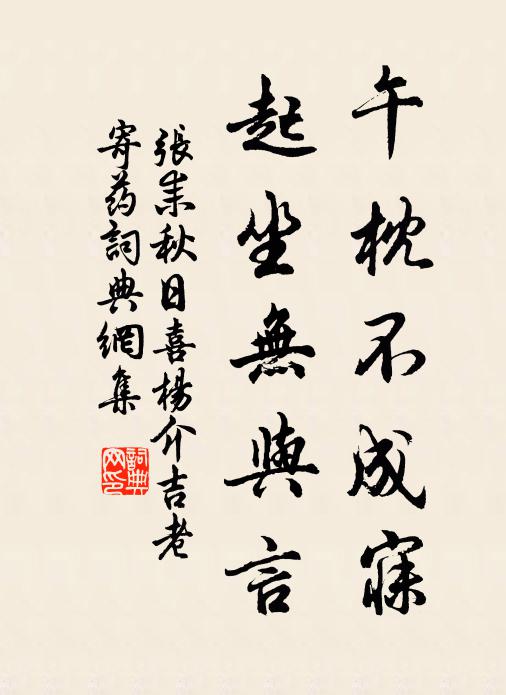 午枕不成寐
起坐無與言
張耒秋日喜楊介吉老
寄药詞典網集
詞典网印